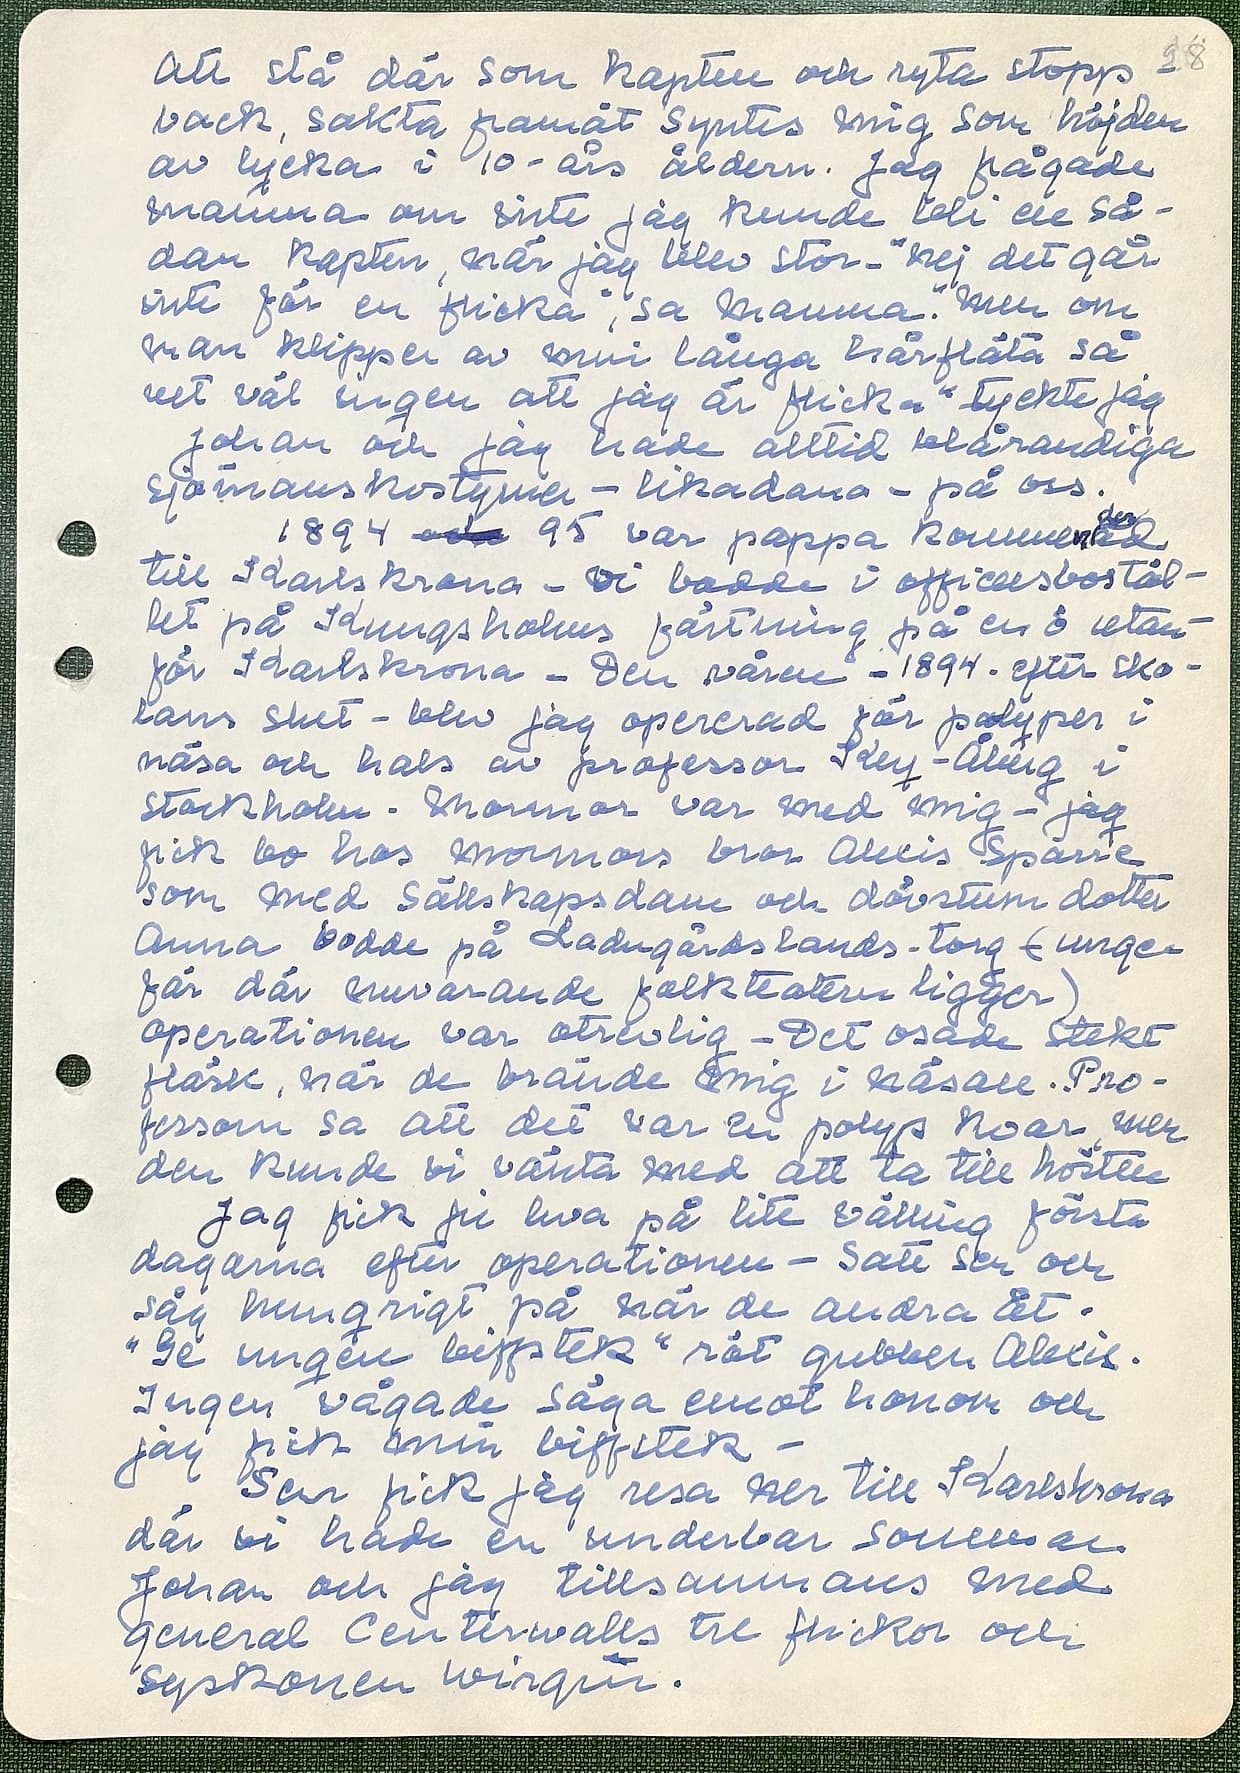 28
Att stå där som kapten och ryta stopp –
back, sakta framåt syntes mig som höjden
av lycka i 10-års åldern. Jag frågade
mamma om inte jag kunde bli en så-
dan kapten, när jag blev stor – "nej det går
inte för en flicka", sa mamma. "Men om
man klipper av min långa hårfläta så
vet väl ingen att jag är flicka" tyckte jag
Johan och jag hade alltid blårandiga
sjömanskostymer – likadana – på oss.
1894 och 95 var pappa kommenderad
till Karlskrona – Vi bodde i officersbostäl-
let på Kungsholms fästning på en ö utan-
för Karlskrona – Den våren – 1894. efter sko-
lans slut – blev jag opererad för polyper i
näsa och hals av professor Key-Åberg i
Stockholm. Mormor var med mig – jag
fick bo hos mormors bror Alexis Sparre
som med sällskapsdam och dövstum dotter
Anna bodde på Ladugårdslands-torg (unge-
fär där nuvarande folkteatern ligger)
operationen var otrevlig – Det osade stekt
fläsk, när de brände mig i näsan. Pro-
fessorn sa att det var en polyp kvar, men
den kunde vi vänta med att ta till hösten
Jag fick ju leva på lite välling första
dagarna efter operationen – Satt sen och
såg hungrigt på när de andra åt.
"Ge ungen biffstek" röt gubben Alexis.
Ingen vågade säga emot honom och
jag fick min biffstek –
Sen fick jag resa ner till Karlskrona
där vi hade en underbar sommar.
Johan och jag tillsammans med
general Centerwalls tre flickor och
syskonen Wirgin.